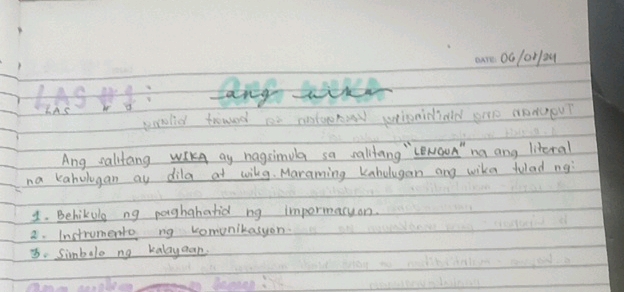 DATE: 06/01/24
LAS #1:
ang WIKA
Ang salitang WIKA ay nagsimula sa salitang "LENGUA" na ang literal
na kahulugan ay dila at wika. Maraming kahulugan ang wika tulad ng:
1. Behikulo ng paghahatid ng impormasyon.
2. Instrumento ng komunikasyon.
3. Simbolo ng kalayaan.
ang wika